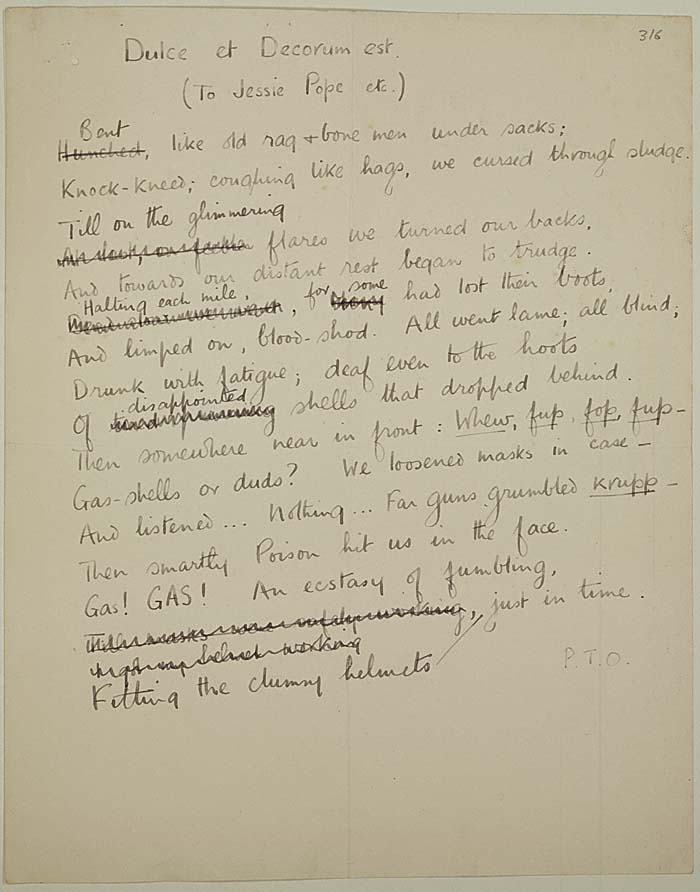 316
Dulce et Decorum est.
(To Jessie Pope etc.)
Bent
Hunched, like old rag & bone men under sacks;
Knock-kneed; coughing like hags, we cursed through sludge.
Till on the glimmering
flares we turned our backs,
And towards our distant rest began to trudge.
Halting each mile, some
, for had lost their boots,
And limped on, blood-shod. All went lame; all blind;
Drunk with fatigue; deaf even to the hoots
disappointed
Of shells that dropped behind.
Then somewhere near in front: Whew, fup, fop, fup-
Gas-shells or duds? We loosened masks in case -
And listened... Nothing... Far guns grumbled Krupp -
Then smartly Poison hit us in the face.
Gas! GAS! An ecstasy of fumbling,
, just in time.
working
Fitting the clumsy helmets
P.T.O.